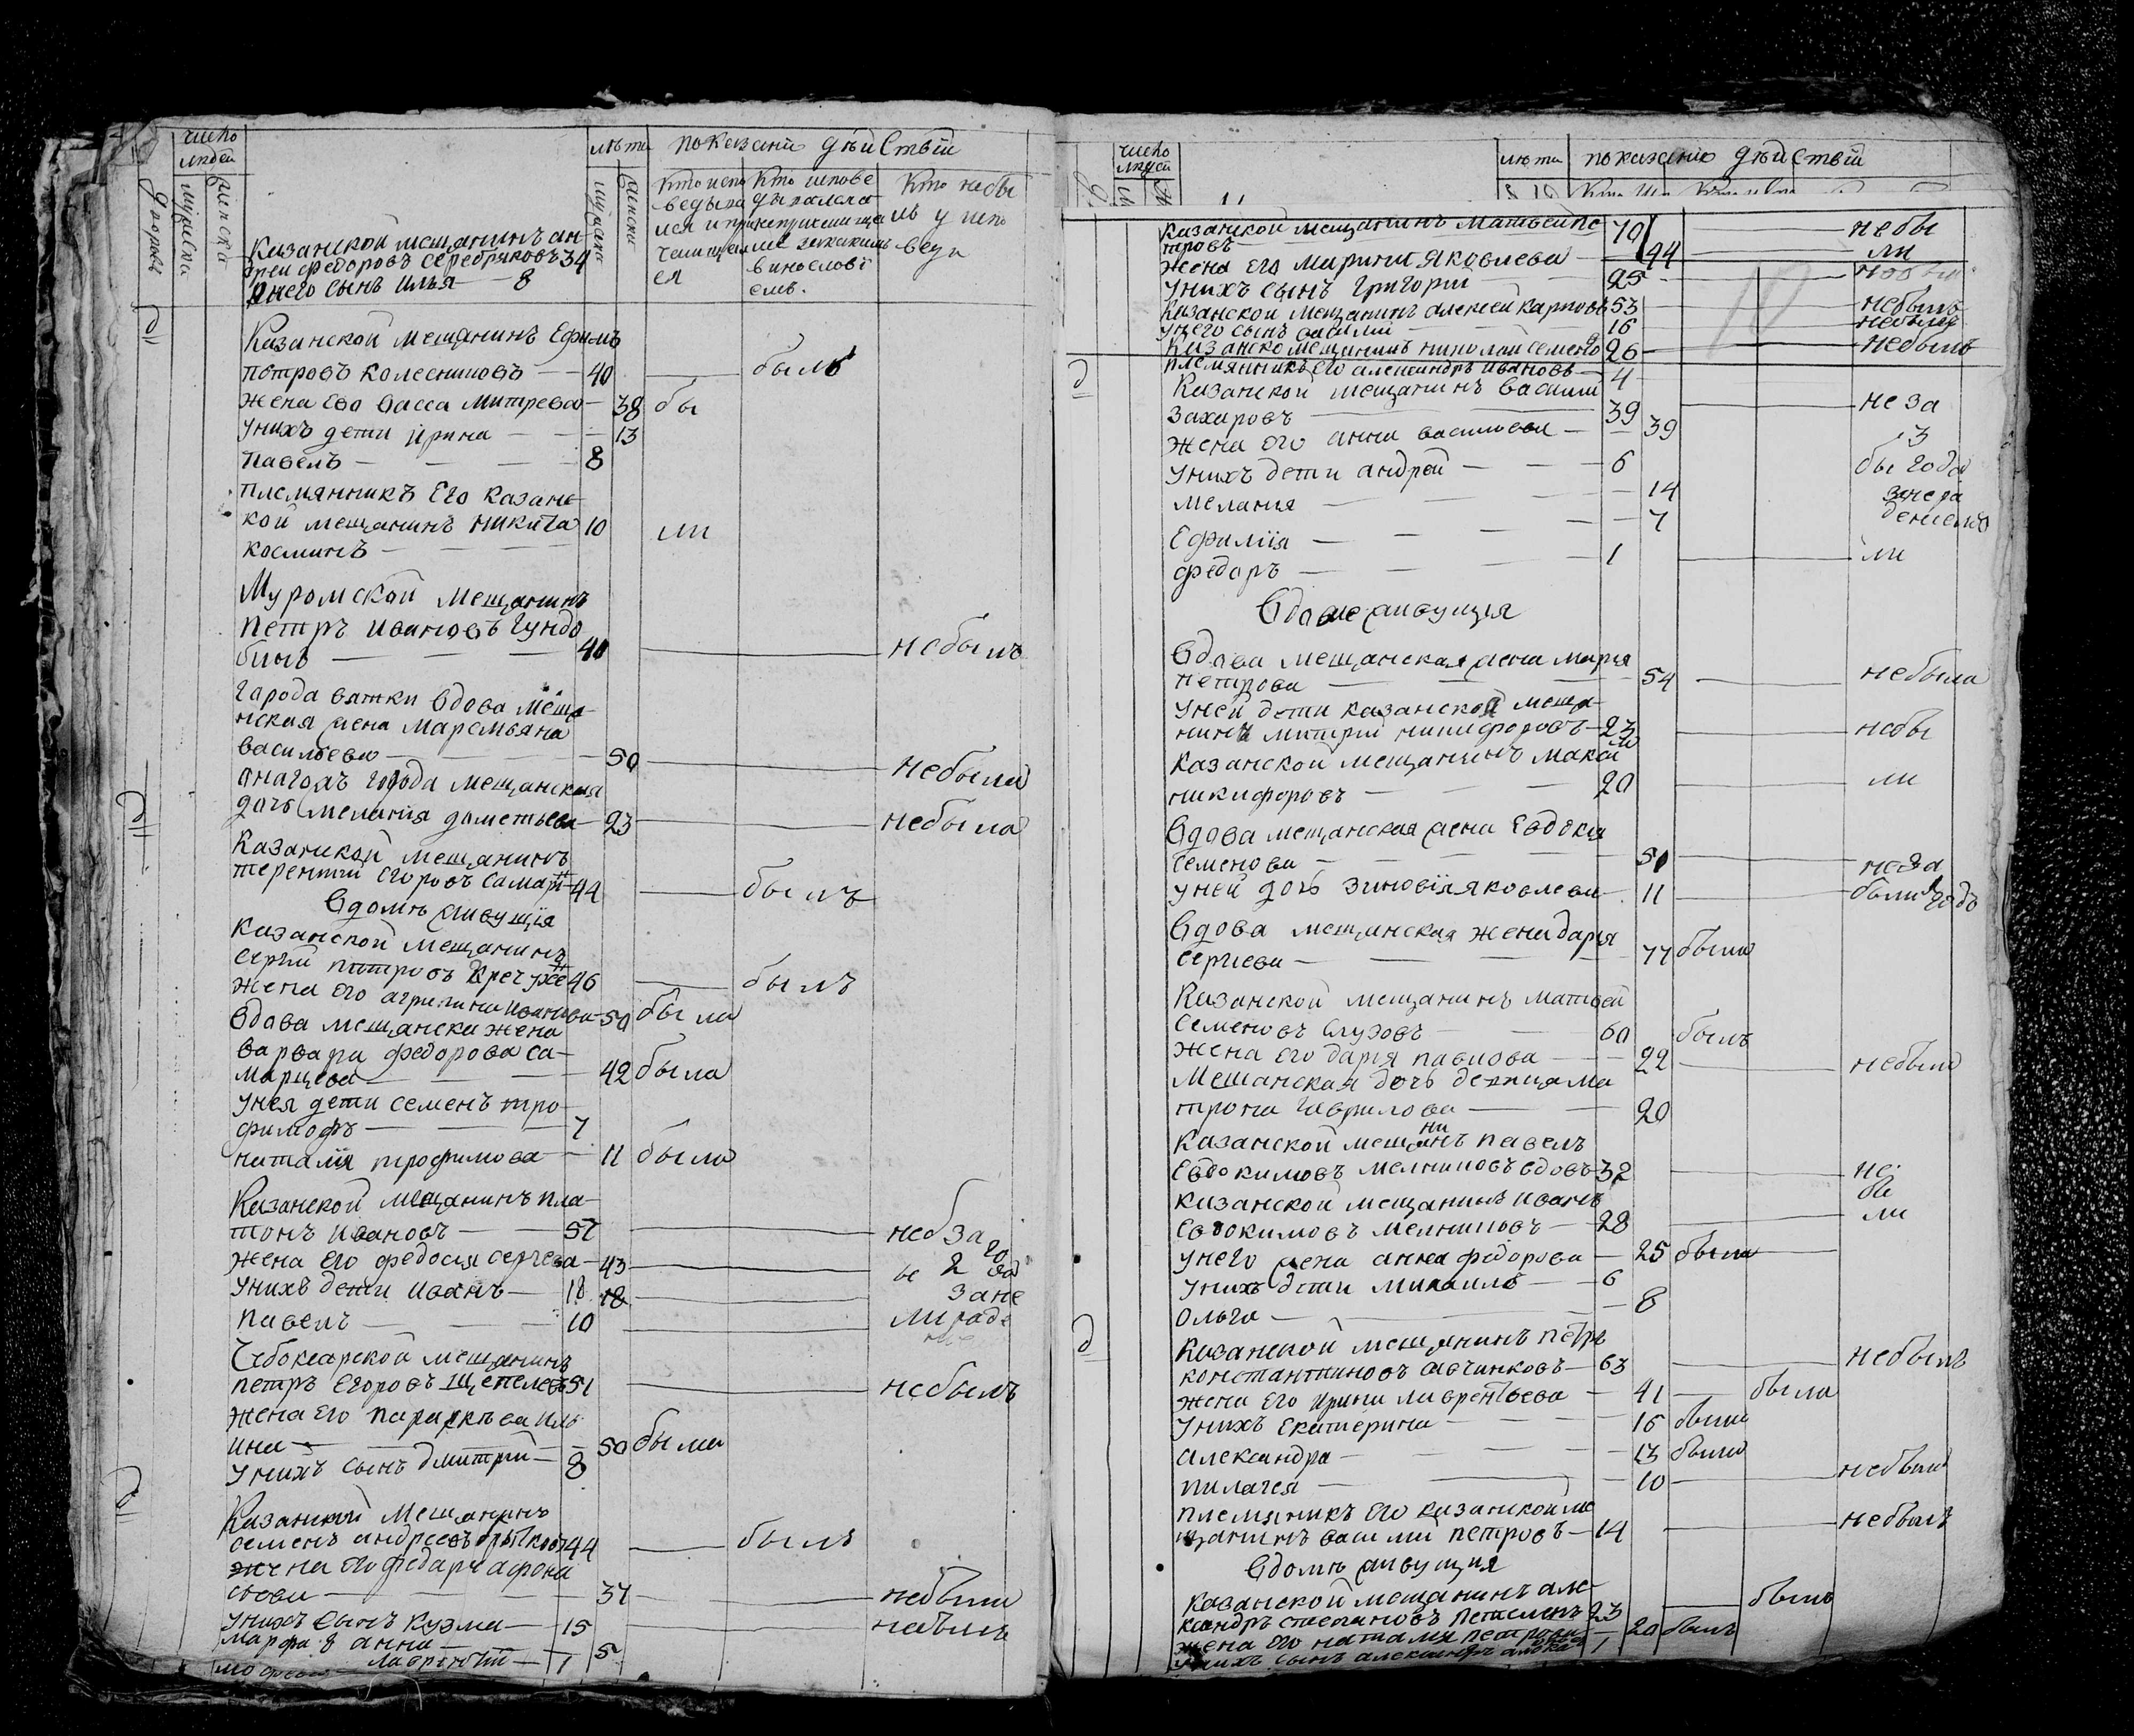 число
людей
лѣта
показаніи дѣйствій
дворовъ
мужеска
женска
мужеска
женска
кто испо
ведыва
лся и при
чащал
ся
кто испове
дывался
кто небы
лъ у испо
веди
Казанской мещанинъ ан-
дреи федоровъ серебряковъ 34
унего сынъ Илья — 8
Казанской мещанинъ Ефимъ
петровъ колесниковъ — 40 — былъ
жена Ево васса митрева — 38 бы
унихъ дети ирина — 13
павелъ — 8
племянникъ Его казанс
кой мещанинъ никита 10 ли
косминъ —
Муромской мещанинъ
петръ ивановъ Гундо
бинъ — 40 — небылъ
города вятки вдова меща
нская жена маремьяна
васильева — 50 — небыла
города мещанская
дочь мелания — 23 — небыла
Казанской мещанинъ
терентий егоровъ 44 — былъ
вдомѣ живущія
казанской мещанинъ
сергѣй петровъ 46 — былъ
жена его агрипина иванова — 50 была
вдова мещанска жена
варвара федорова са-
марцева — 42 была
унея дети семенъ тро
фимофъ — 7
наталія трофимова — 11 была
Казанской мещанинъ пла-
тонъ ивановъ — 57 — неб за
жена его федосья сергева — 43 — 2
унихъ дети иванъ — 18 — зане
павелъ — 10 — ли раде
Чебоксарской мещанинъ
петръ егоровъ щепелевъ 51 — небылъ
жена его параскѣва иль
ина — 50 была
унихъ сынъ дмитрий — 8
Казанкой мещанинъ
семенъ андреевъ 44 — былъ
жена его афона
сьева — 37 — небыла
унихъ сынъ кузма — 15 — небылъ
марфа 8 анна — 5
лаврентій — 1
число
людей
лѣта
показаніе дѣйствій
казанской мещанинъ матвей пе
тровъ — 70 — небы
жена его марина яковлева — 44 — ли
унихъ сынъ григорий — 25
казанской мещанинъ алексей карповъ 53 — небылъ
унего сынъ василий 16 — небылъ
казанско мещанинъ николай семено 26 — небылъ
племянникъ его александръ ивановъ — 4
казанской мещанинъ василий
захаровъ — 39 — не за
жена его анна васильева — 39 3
унихъ дети андрей — 6 бы года
мелания — 14
Ефимия — 7
федоръ — 1 — ли
вдоме живущія
вдова мещанская жена марья
петрова — 54 — небыла
уней дети казанской меща-
нинъ митрий никифоровъ — 23 — небы
казанской мещанинъ макси
мъ
никифоровъ — 20 — ли
вдова мещанская жена евдокия
семенова — 50 — неза
уней дочь зиновія яковлева 11 — были
вдова мещанская жена дарья
сергиева — 77 была
казанской мещанинъ матвей
семеновъ глуховъ — 60 былъ
жена его дарья павлова — 22 — небыла
мещанская дочь девица ма
трона гаврилова — 20
казанской мещанинъ павелъ
евдокимовъ мелниковъ вдовъ — 32 — не
казанской мещанинъ иванъ бы
евдокимовъ мелниковъ — 28 — ли
унего жена анна федорова — 25 была
унихъ дети михаилъ — 6
ольга — 8
казанской мещанинъ петръ
константиновъ овчинковъ — 63 — небылъ
жена его ирина лаврентьева — 41 — была
унихъ екатерина — 16 была
александра — 13 была
пилагея — 10 — небыла
племяникъ его казанской ме
щанинъ василий петровъ — 14 — небылъ
вдомѣ живущия
казанской мещанинъ але-
ксандръ степановъ 23 — былъ
жена его наталья петрова — 20 была
унихъ сынъ александръ 1